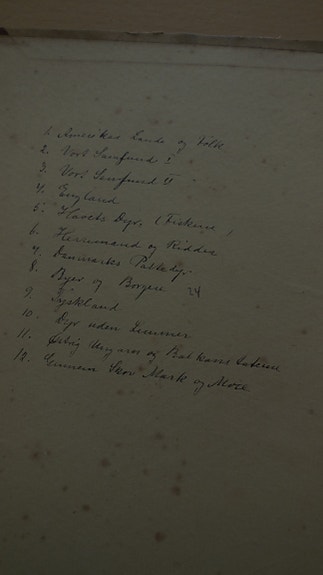 1. Amerikas Lande og Folk
2. Vort Samfund I
3. Vort Samfund II
4. England
5. Havets Dyr. (Fiskene)
6. Herremand og Ridder
7. Danmarks Pattedyr
8. Byer og Borgere 24
9. Tyskland
10. Dyr uden Lemmer
11. Østrig Ungarn og Balkanstaterne
12. Gennem Skov Mark og Mose